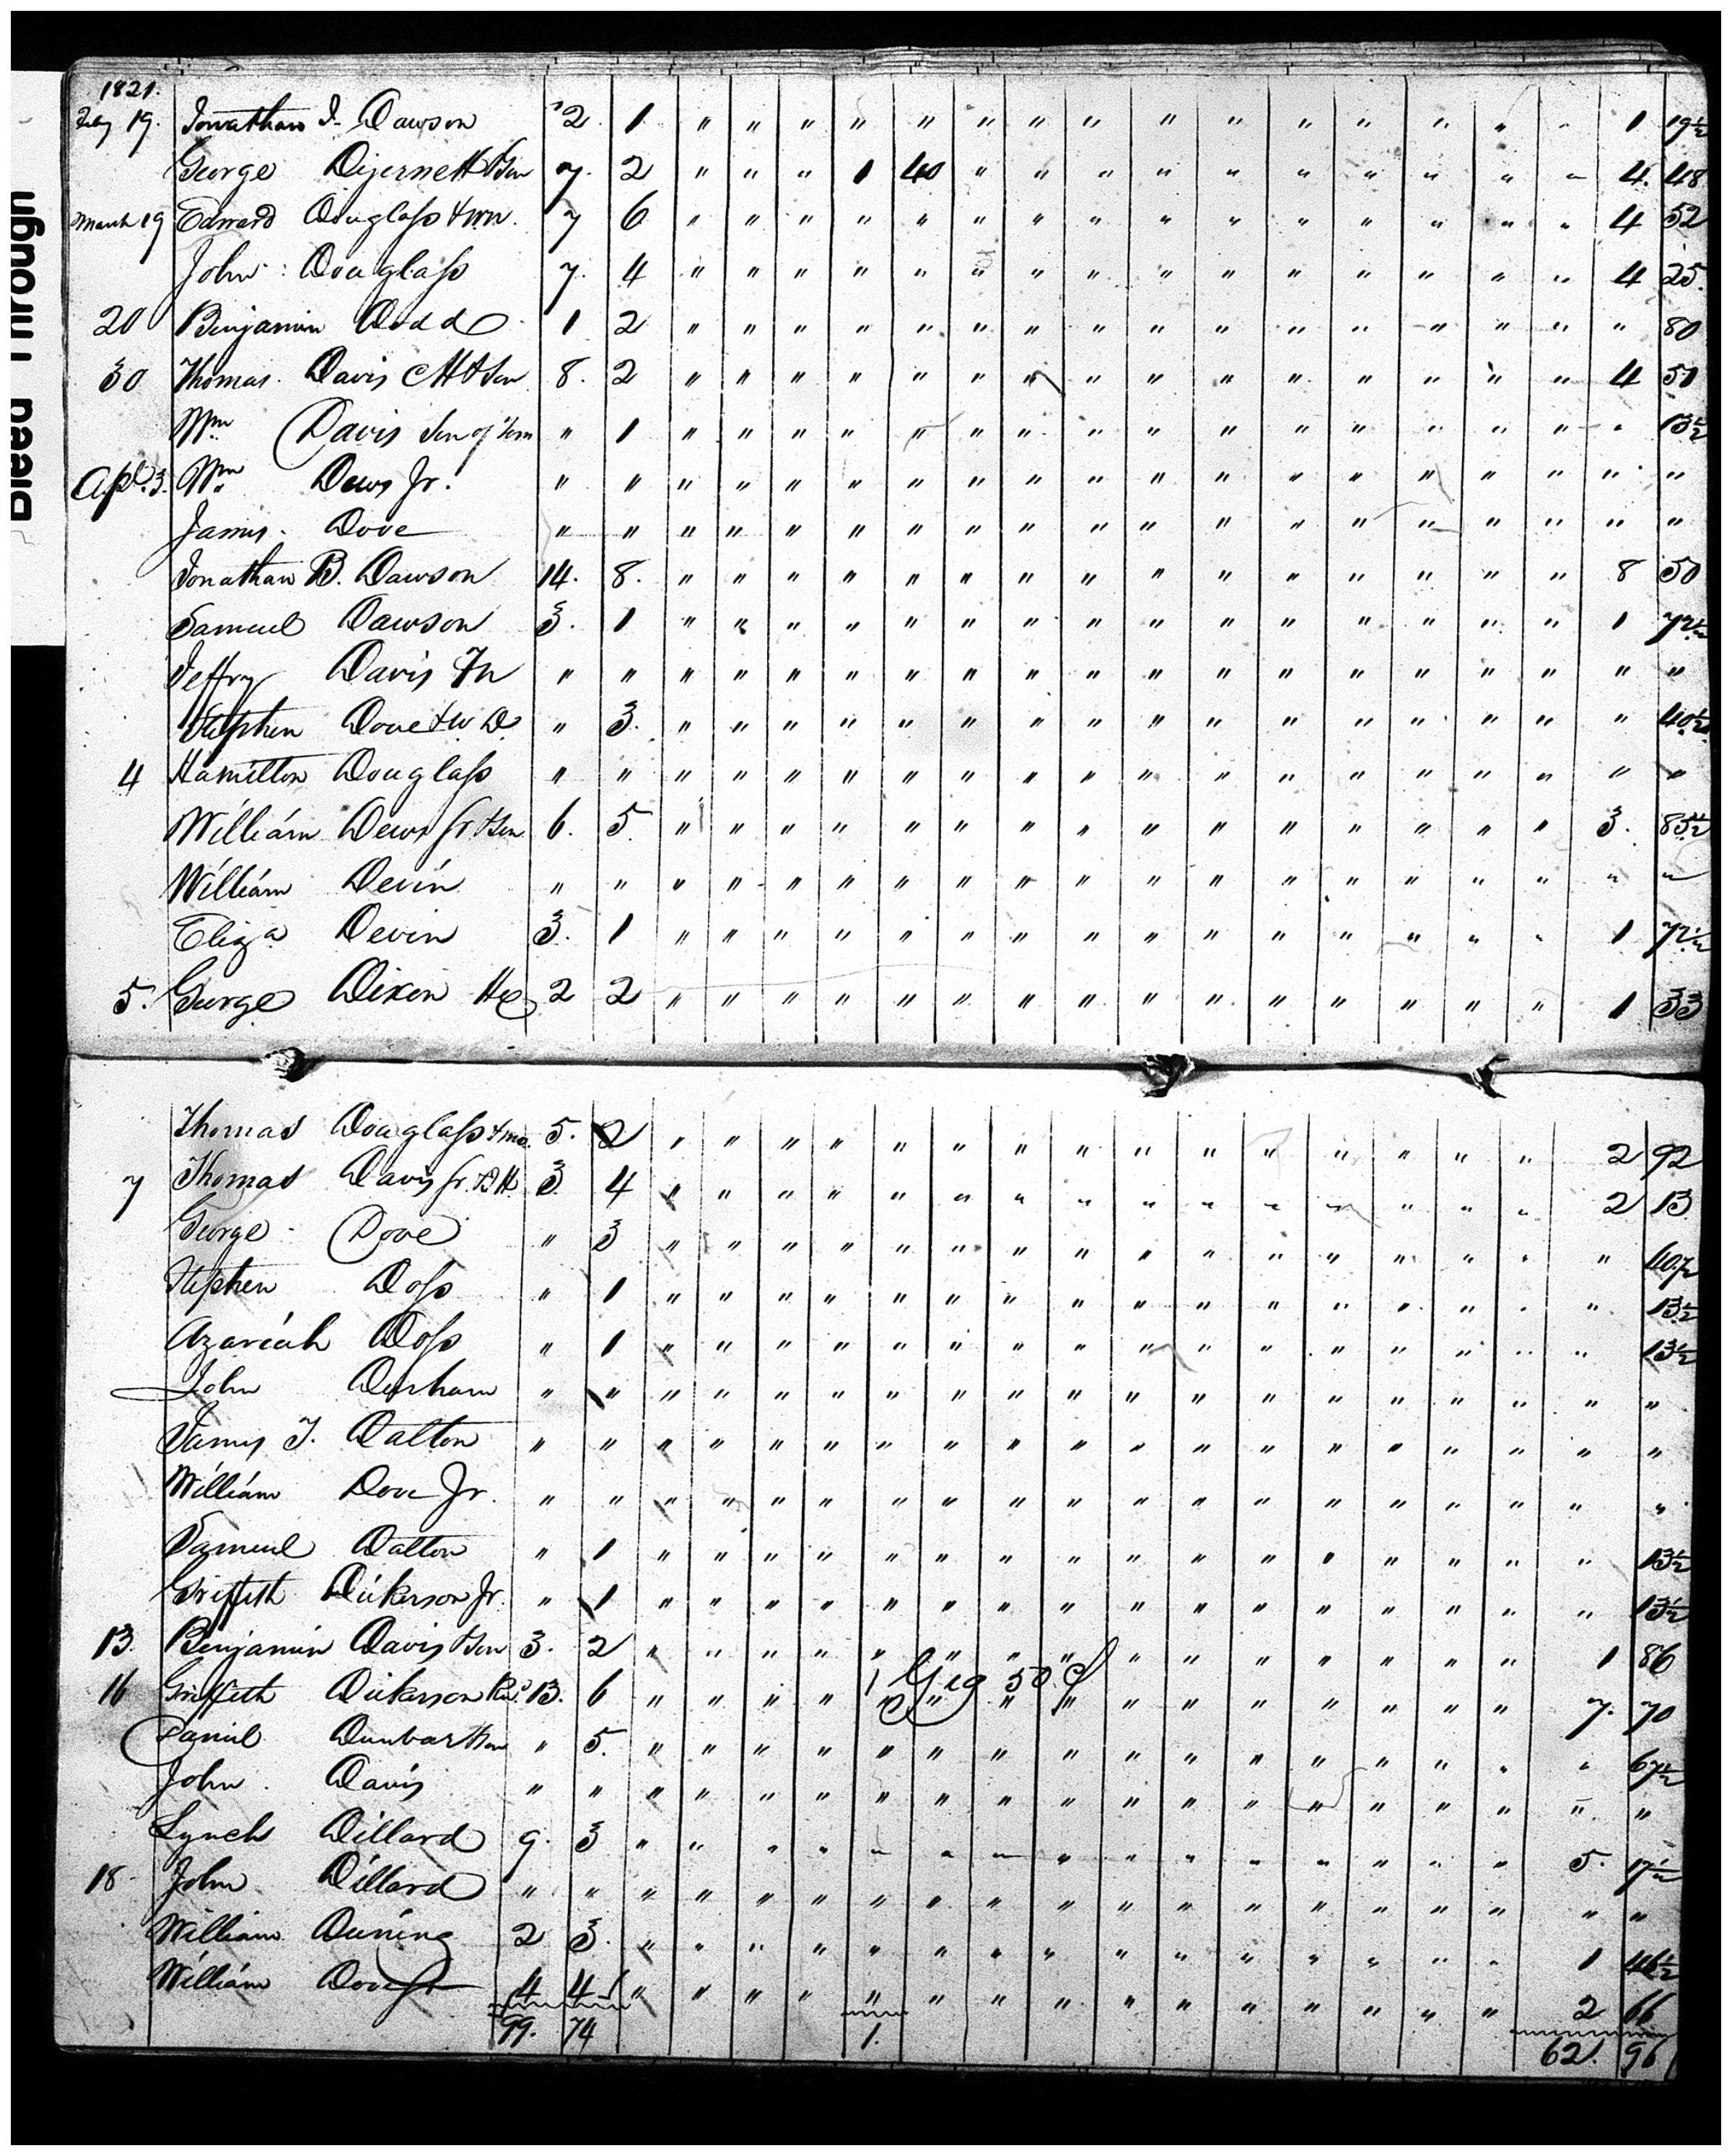 1821.
Feby 19. Jonathan J. Dawson 2. 1 " " " " " " " " " " " " " " " 1 19½
George Dejernett & Son 7. 2 " " " 1 40 " " " " " " " " " " 4. 48
March 19 Edward Douglass & Wm. 7 6 " " " " " " " " " " " " " " " 4 52
John Douglass 7. 4 " " " " " " " " " " " " " " " 4 25.
20 Benjamin Dodd 1 2 " " " " " " " " " " " " " " " " 80
30 Thomas Davis CH & Son 8. 2 " " " " " " " " " " " " " " " 4 51
Wm Davis Son of Tom " 1 " " " " " " " " " " " " " " " " 13½
Apl. 3. Wm Dews Jr. " " " " " " " " " " " " " " " " " " "
James Dove " " " " " " " " " " " " " " " " " " "
Jonathan B. Dawson 14. 8. " " " " " " " " " " " " " " " 8 50
Samuel Dawson 3. 1 " " " " " " " " " " " " " " " 1 72½
Jeffry Davis " " " " " " " " " " " " " " " " " " "
Stephen Dove & W D. " 3. " " " " " " " " " " " " " " " " 40½
4 Hamilton Douglass " " " " " " " " " " " " " " " " " " "
William Dews Sr. & Son 6. 5. " " " " " " " " " " " " " " " 3. 85½
William Devin " " " " " " " " " " " " " " " " " " "
Eliza Devin 3. 1 " " " " " " " " " " " " " " " 1 72½
5. George Dixon 2 2 " " " " " " " " " " " " " " " 1 33
Thomas Douglass 5. 2 " " " " " " " " " " " " " " " 2 92
7 Thomas Davis Sr. B H. 3. 4 " " " " " " " " " " " " " " " 2 13
George Dove " 3 " " " " " " " " " " " " " " " " 40½
Stephen Doss " 1 " " " " " " " " " " " " " " " " 13½
Azariah Doss " 1 " " " " " " " " " " " " " " " " 13½
John Durham " " " " " " " " " " " " " " " " " " "
James T. Dalton " " " " " " " " " " " " " " " " " " "
William Dove Jr. " " " " " " " " " " " " " " " " " " "
Samuel Dalton " 1 " " " " " " " " " " " " " " " " 13½
Griffeth Dickerson Jr. " 1 " " " " " " " " " " " " " " " " 13½
13. Benjamin Davis & Son 3. 2 " " " " " " " " " " " " " " " 1 86
1 Gig 50 C
16 Griffeth Dickerson 13. 6 " " " " " " " " " " " " " " 7. 70
Daniel Dunbar & Son " 5. " " " " " " " " " " " " " " " " 67½
John Davis " " " " " " " " " " " " " " " " " " "
Lynch Dillard 9. 3 " " " " " " " " " " " " " " " 5. 17½
18. John Dillard " " " " " " " " " " " " " " " " " " "
William Duning 2 3. " " " " " " " " " " " " " " " 1 46½
William Dove Sr 4 4 " " " " " " " " " " " " " " " 2 66
99. 74 1. 62. 96